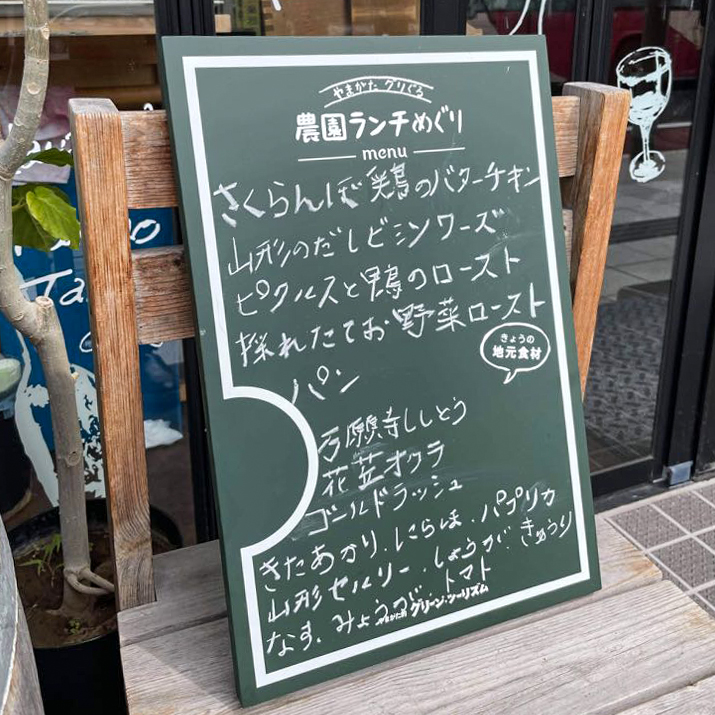 やまがた グリぐる
農園ランチめぐり
menu
さくらんぼ鶏のバターチキン
山形のだしビシソワーズ
ピクルスと鴨のロースト
採れたてお野菜ロースト
パン
きょうの
地元食材
万願寺ししとう
花笠オクラ
ゴールドラッシュ
きたあかり、にらほ、パプリカ
山形セルリー、しょうが、きゅうり
なす、みょうが、トマト
やまがた グリーン・ツーリズム